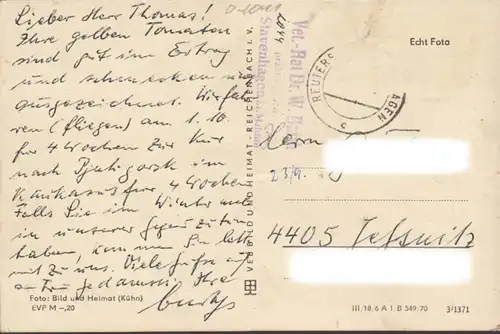 Lieber Herr Thomas!
Ihre gelben Tomaten
sind gut im Ertrag
und schmecken
ausgezeichnet. Wir fah-
ren (fliegen) am 1.10.
für 4 Wochen zur Kur
nach Pjatigorsk im
Kaukasus für 4 Wochen
Falls Sie im Winter mal
in unserer Gegend zu tun
haben, kommen Sie bitte
mit zu uns. Viele Grüße auch
an Ihre
Foto: Bild und Heimat (Kühn)
EVP M –,20
VERLAG BILD UND HEIMAT · REICHENBACH i. V.
Vet.-Rat Dr. W.
Stavenhagen
REUTERS AGEN
c
Echt Foto
Herrn
23/9.
4405 Jeßnitz
III/18,6 A 1 B 549/70
3/1371